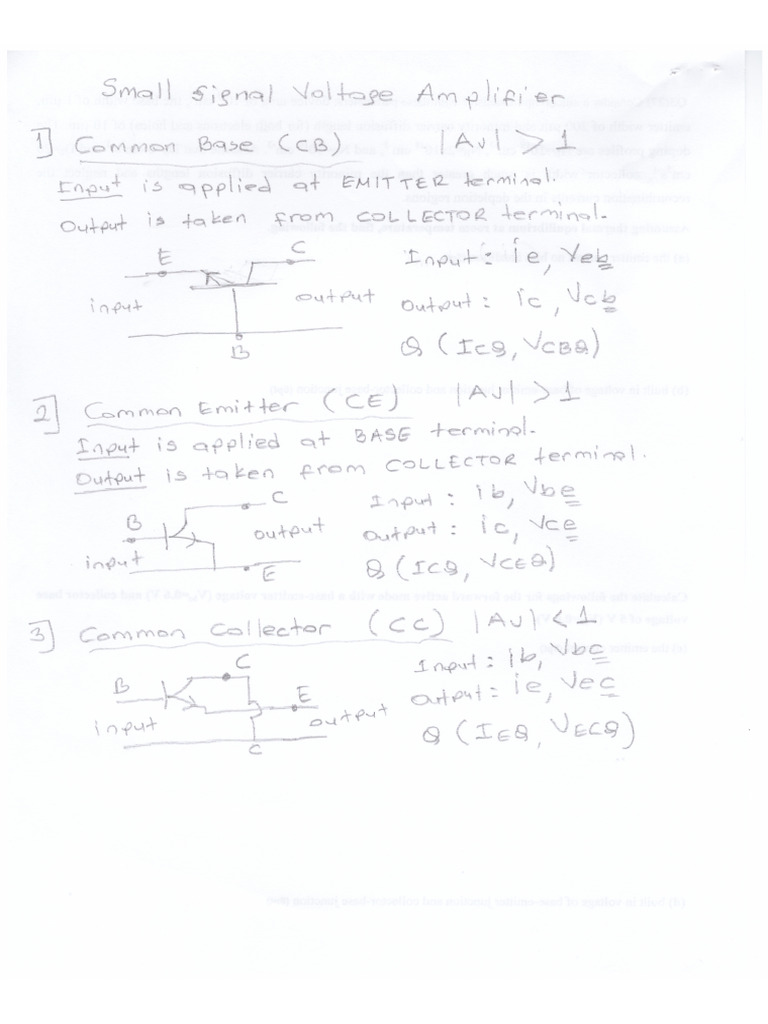 Small Signal Voltage Amplifier
1] Common Base (CB) |Av| > 1
Input is applied at EMITTER terminal.
Output is taken from COLLECTOR terminal.
E C Input : ie, Veb
input output Output : ic, Vcb
B Q (ICQ, VCBQ)
2] Common Emitter (CE) |Av| > 1
Input is applied at BASE terminal.
Output is taken from COLLECTOR terminal.
C Input : ib, Vbe
B output Output : ic, Vce
input E Q (ICQ, VCEQ)
3] Common Collector (CC) |Av| < 1
C Input : ib, Vbc
B E Output : ie, Vec
input output Q (IEQ, VECQ)
C